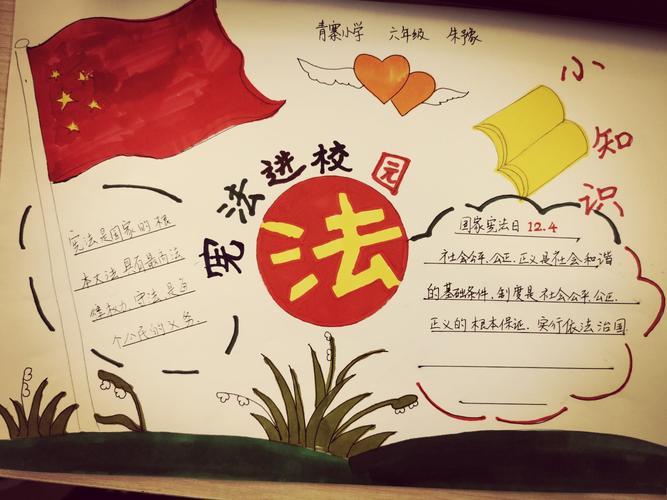 青寨小学 六年级 朱豫
小知识
宪法进校园
法
宪法是国家的根
本大法,具有最高法
律权力,守法是每
个公民的义务.
国家宪法日 12.4
社会公平、公正、正义是社会和谐
的基础条件,制度是社会公平、公正、
正义的根本保证.实行依法治国.